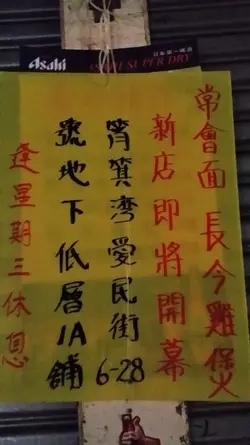 Asahi
日本第一啤酒
ASAHI SUPER DRY
常會面 長今雞煲
新店即將開幕
筲箕灣愛民街6-28
號地下低層1A舖
逢星期三休息